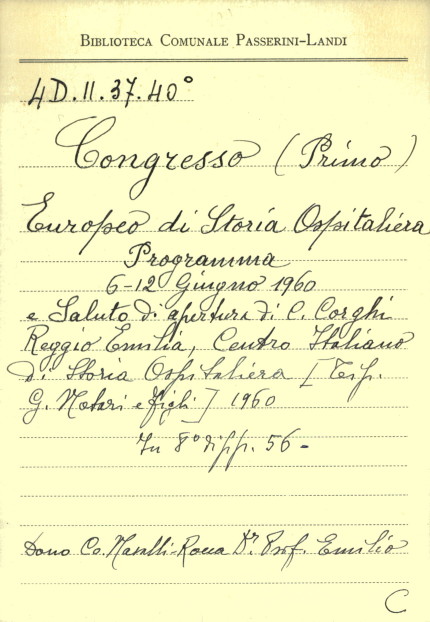 BIBLIOTECA COMUNALE PASSERINI-LANDI
4D.II.37.40°
Congresso (Primo)
Europeo di Storia Ospitaliera
Programma
6-12 Giugno 1960
e Saluto di apertura di C. Corghi
Reggio Emilia, Centro Italiano
di Storia Ospitaliera [Tip.
G. Notari e figli] 1960
In 8° di pp. 56-
Dono Co. Nasalli-Rocca Dr. Prof. Emilio
C